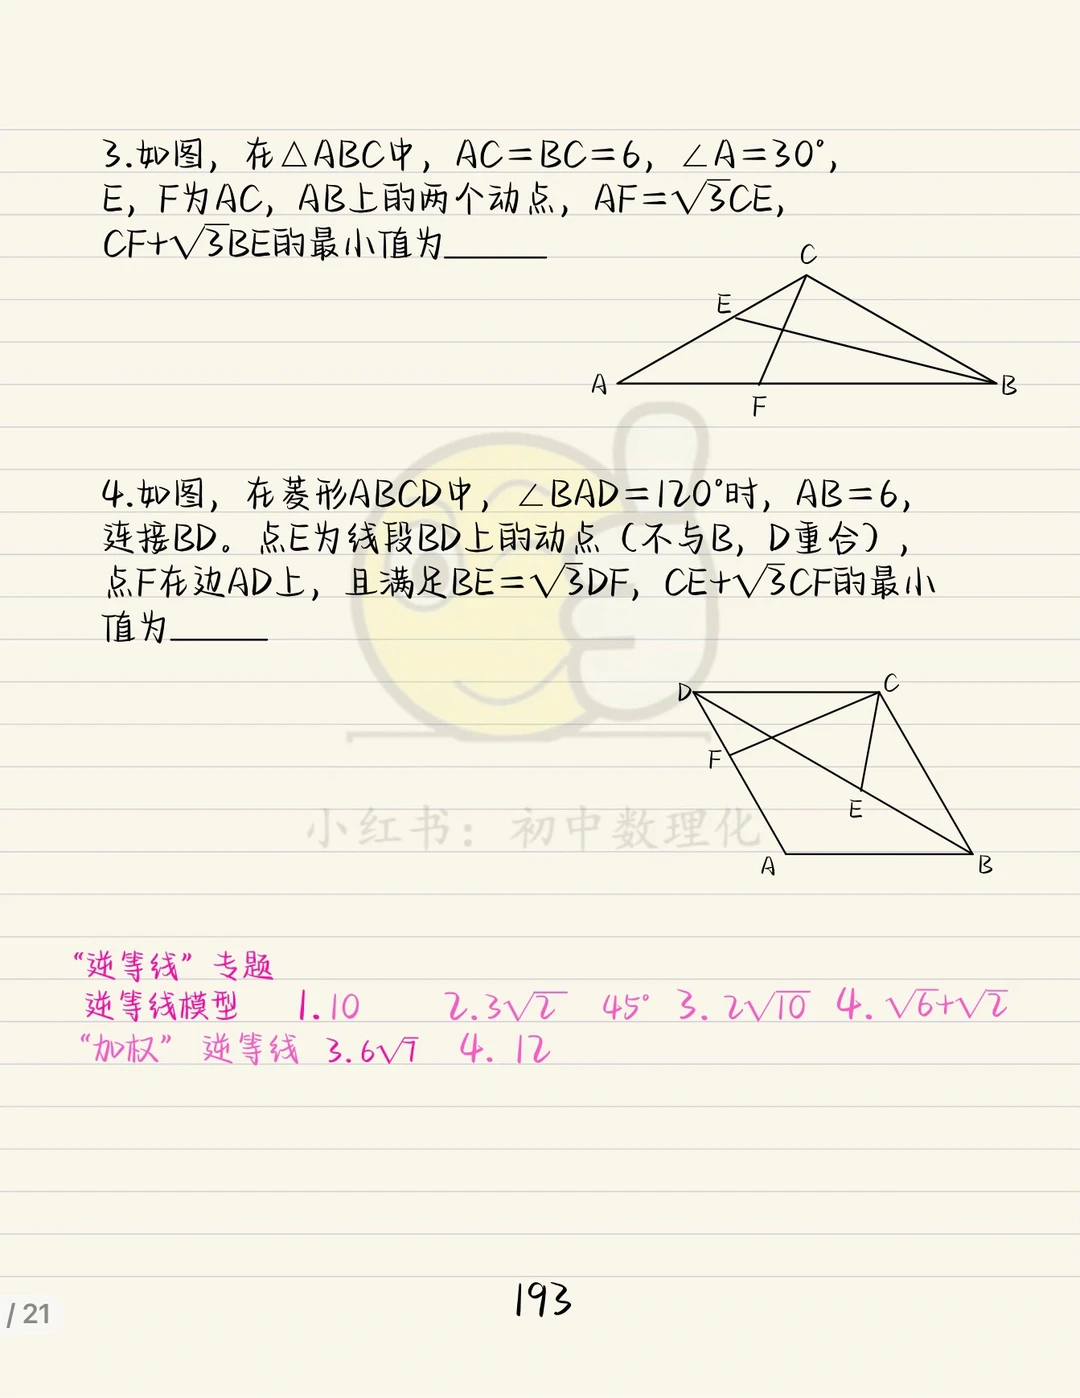 3.如图，在△ABC中，AC=BC=6，∠A=30°，
E，F为AC，AB上的两个动点，AF=√3CE，
CF+√3BE的最小值为______
C
E
A
B
F
4.如图，在菱形ABCD中，∠BAD=120°时，AB=6，
连接BD。点E为线段BD上的动点（不与B，D重合），
点F在边AD上，且满足BE=√3DF，CE+√3CF的最小
值为______
D
C
F
E
A
B
小红书：初中数理化
“逆等线”专题
逆等线模型 1.10 2.3√2 45° 3.2√10 4.√6+√2
“加权”逆等线 3.6√7 4.12
193
/ 21